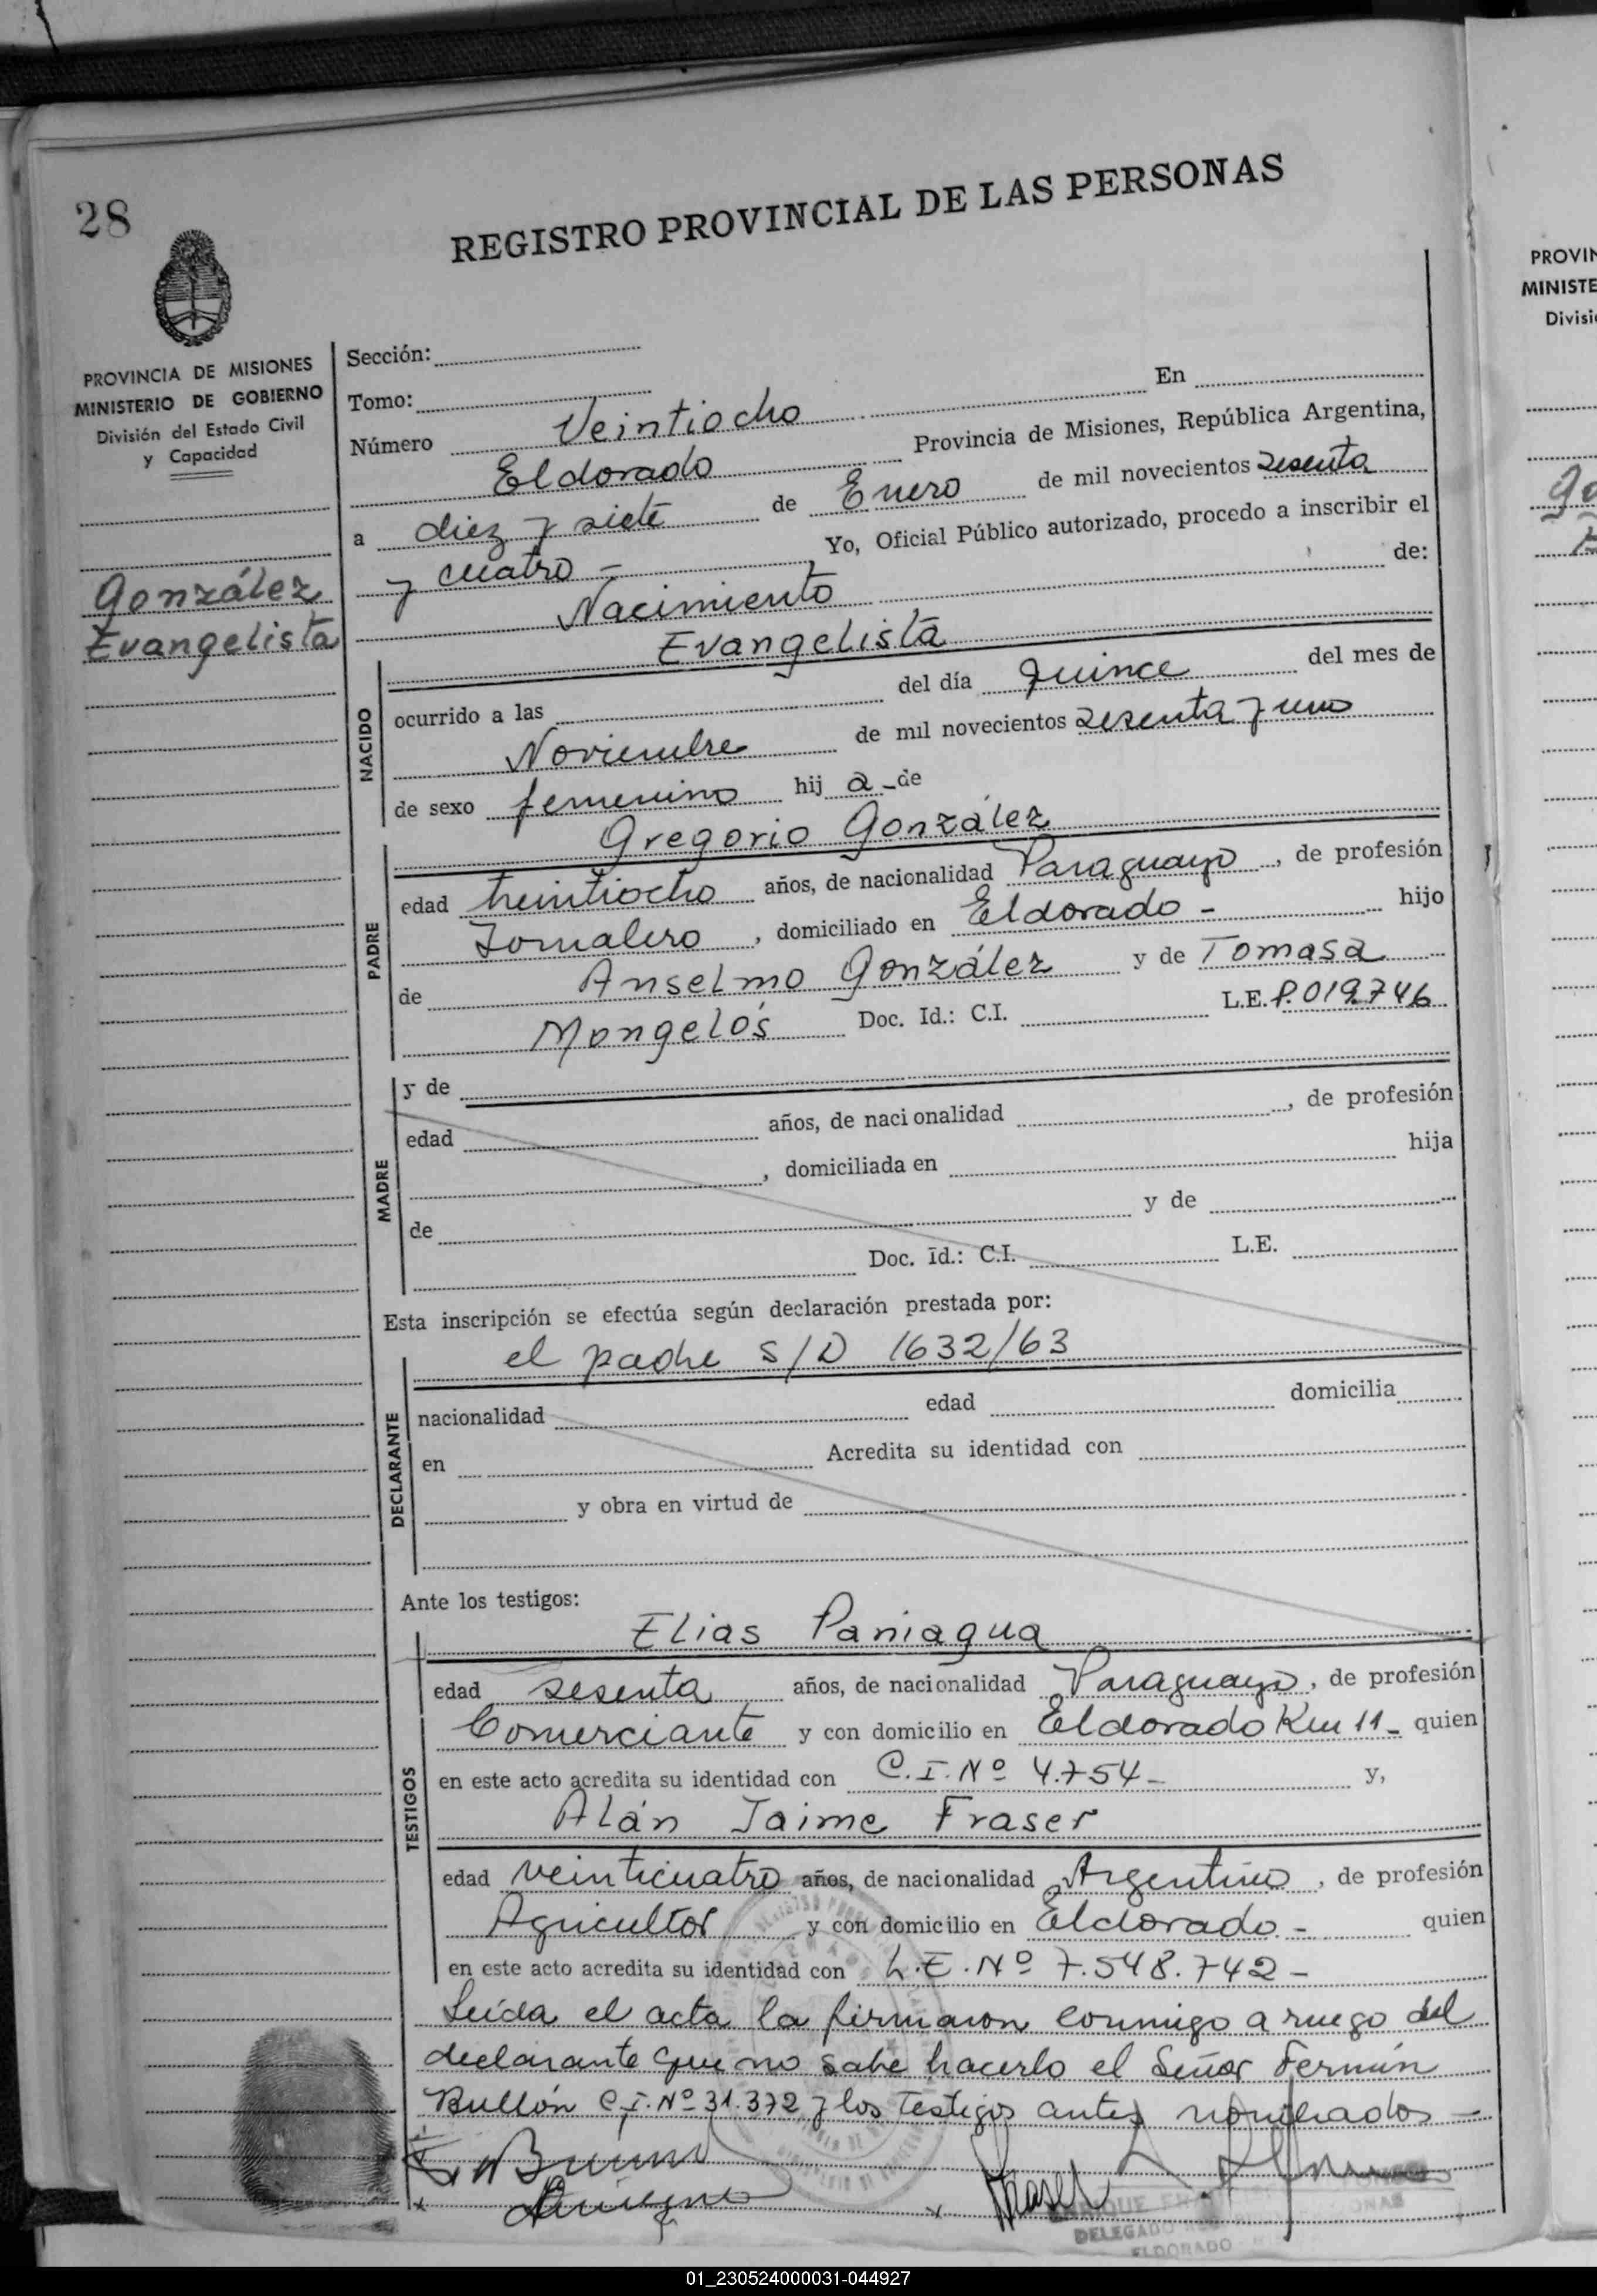 28
REGISTRO PROVINCIAL DE LAS PERSONAS
PROVINCIA DE MISIONES
MINISTERIO DE GOBIERNO
División del Estado Civil
y Capacidad
González
Evangelista
Sección:
Tomo:
Número Veintiocho En
Eldorado Provincia de Misiones, República Argentina,
a diez y siete de Enero de mil novecientos sesenta
y cuatro - Yo, Oficial Público autorizado, procedo a inscribir el
Nacimiento de:
Evangelista
NACIDO
ocurrido a las del día quince del mes de
Noviembre de mil novecientos sesenta y uno
de sexo femenino hij a - de
Gregorio González
PADRE
edad treintiocho años, de nacionalidad Paraguayo, de profesión
Jornalero, domiciliado en Eldorado - hijo
de Anselmo González y de Tomasa
Mongelós Doc. Id.: C.I. L.E. P. 019.746
MADRE
y de
edad años, de nacionalidad , de profesión
, domiciliada en hija
de y de
Doc. Id.: C.I. L.E.
Esta inscripción se efectúa según declaración prestada por:
el padre S/D 1632/63
DECLARANTE
nacionalidad edad domicilia
en Acredita su identidad con
y obra en virtud de
Ante los testigos:
Elias Paniagua
TESTIGOS
edad sesenta años, de nacionalidad Paraguayo, de profesión
Comerciante y con domicilio en Eldorado Km 11 - quien
en este acto acredita su identidad con C.I. Nº 4.754 - y,
Alán Jaime Fraser
edad veinticuatro años, de nacionalidad Argentino, de profesión
Agricultor y con domicilio en Eldorado - quien
en este acto acredita su identidad con L.E. Nº 7.548.742 -
Leída el acta la firmaron conmigo a ruego del
declarante que no sabe hacerlo el Señor Fermín
Bullón C.I. Nº 31.372 y los testigos antes nombrados -
Fraser
ENRIQUE
DELEGADO
ELDORADO
PROVIN
MINISTE
Divisi
01_230524000031-044927